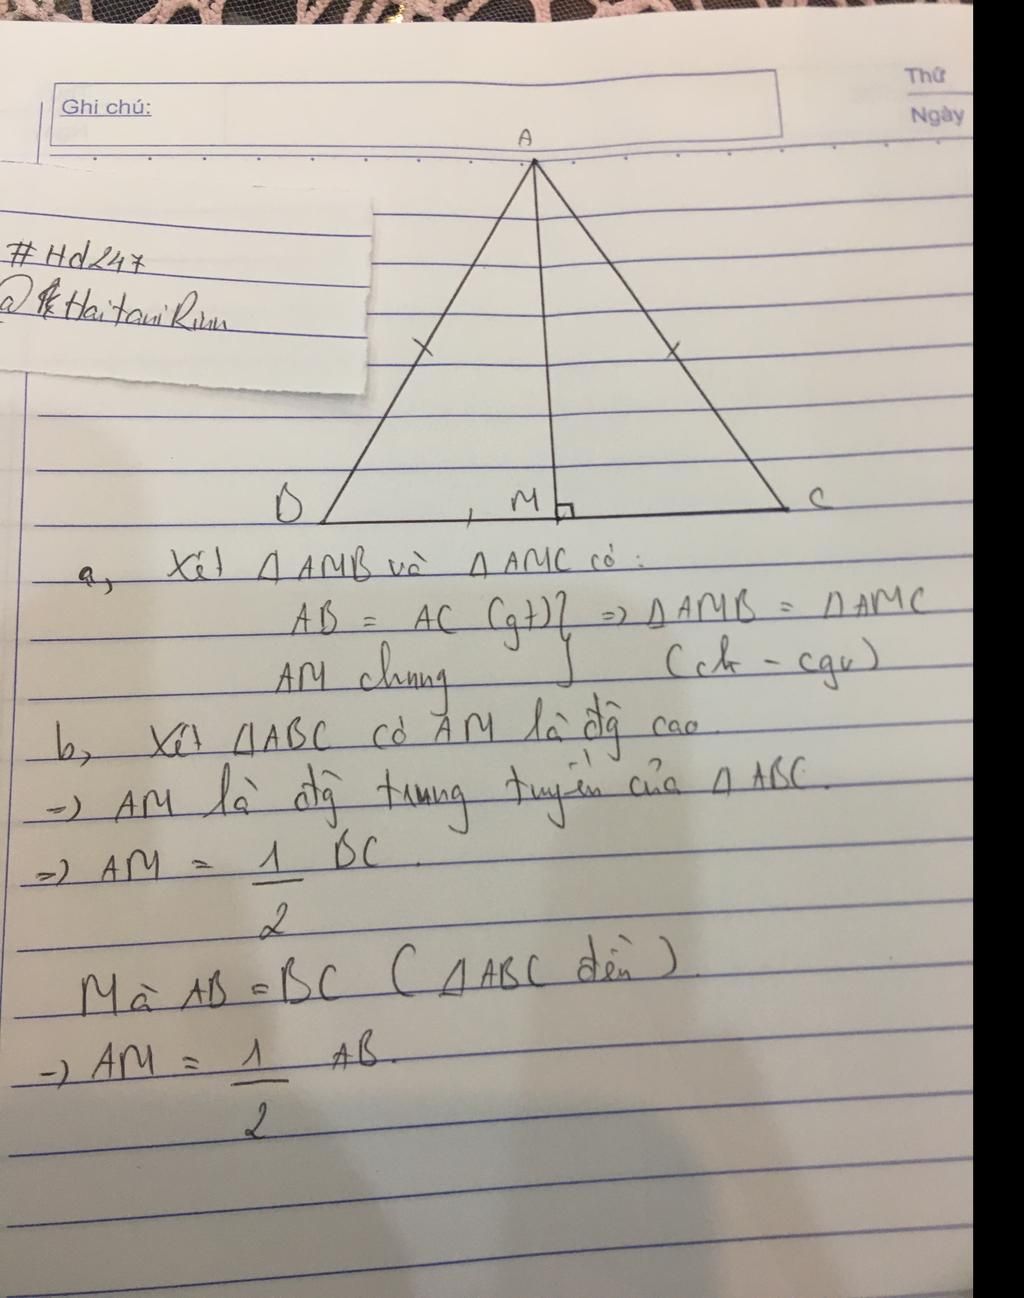 Ghi chú:
Thứ
Ngày
#Hd247
@HaitaniRinn
A
B
M
C
a, Xét Δ AMB và Δ AMC có :
AB = AC (gt) } => Δ AMB = Δ AMC
AM chung (ch - cgv)
b, Xét ΔABC có AM là đg̀ cao.
=> AM là đg̀ trung tuyến của Δ ABC.
=> AM = 1/2 BC.
Mà AB = BC (ΔABC đều).
=> AM = 1/2 AB.